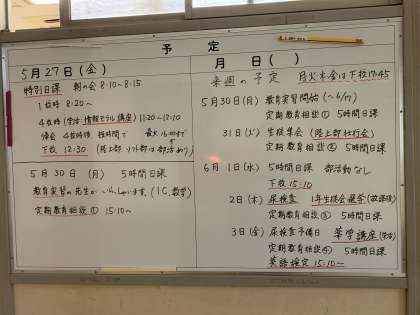 予定
5月27日(金)
特別日課 朝の会 8:10~8:15
1校時 8:20~
4校時(学活:情報モラル講座) 11:20~12:10
帰会 4校時後 短時間で 最大16:00まで
下校 12:30 (陸上部 ソフト部は部活あり)
5月30日(月) 5時間日課
教育実習の先生がいらっしゃいます。(1C, 数学)
定期教育相談① 15:10~
月 日( )
来週の予定 月火木金は下校17:45
5月30日(月) 教育実習開始
定期教育相談① 5時間日課
31日(火) 生徒集会(陸上部壮行会)
定期教育相談② 5時間日課
6月1日(水) 5時間日課 部活動なし
下校 15:10
2日(木) 尿検査 1年生議会選茶(放課後)
定期教育相談③ 5時間日課
3日(金) 尿検査予備日 薬学講座
定期教育相談④ 5時間日課
英語検定 15:10~